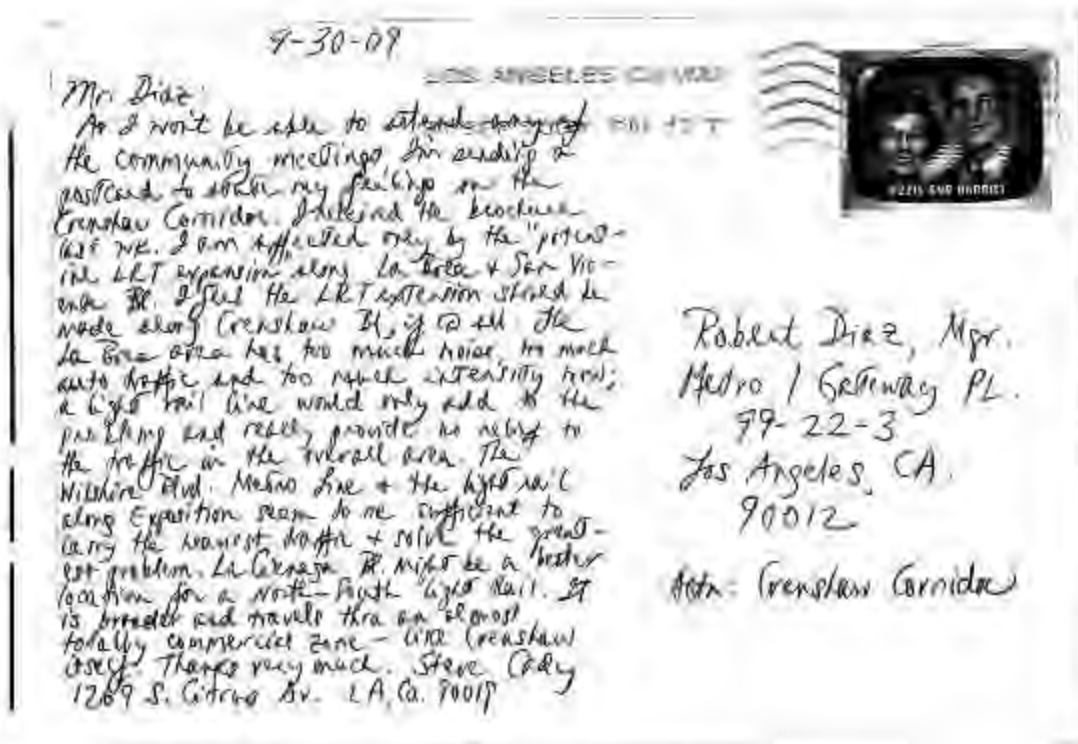 9-30-09
LOS ANGELES CA
Mr. Diaz:
As I won't be able to attend any of
the community meetings, I'm sending a
postcard to state my feelings on the
Crenshaw Corridor. I received the brochure
last wk. I am affected only by the "potent-
ial LRT expansion along La Brea & San Vic-
ente Bl. I feel the LRT extension should be
made along Crenshaw Bl, if @ all. The
La Brea area has too much noise, too much
auto traffic and too much intensity now;
a light rail line would only add to the
problems and really provide no relief to
the traffic in the overall area. The
Wilshire Blvd. Metro Line & the light rail
along Exposition seem to me sufficient to
carry the heaviest traffic & solve the great-
est problem. La Cienega Bl. might be a better
location for a North-South Light Rail. It
is broader and travels thru an almost
totally commercial zone - like Crenshaw
itself. Thanks very much. Steve Cady
1269 S. Citrus Av. LA, Ca. 90019
OZZIE AND HARRIET
Robert Diaz, Mgr.
Metro / Gateway PL.
99-22-3
Los Angeles, CA.
90012
Attn: Crenshaw Corridor